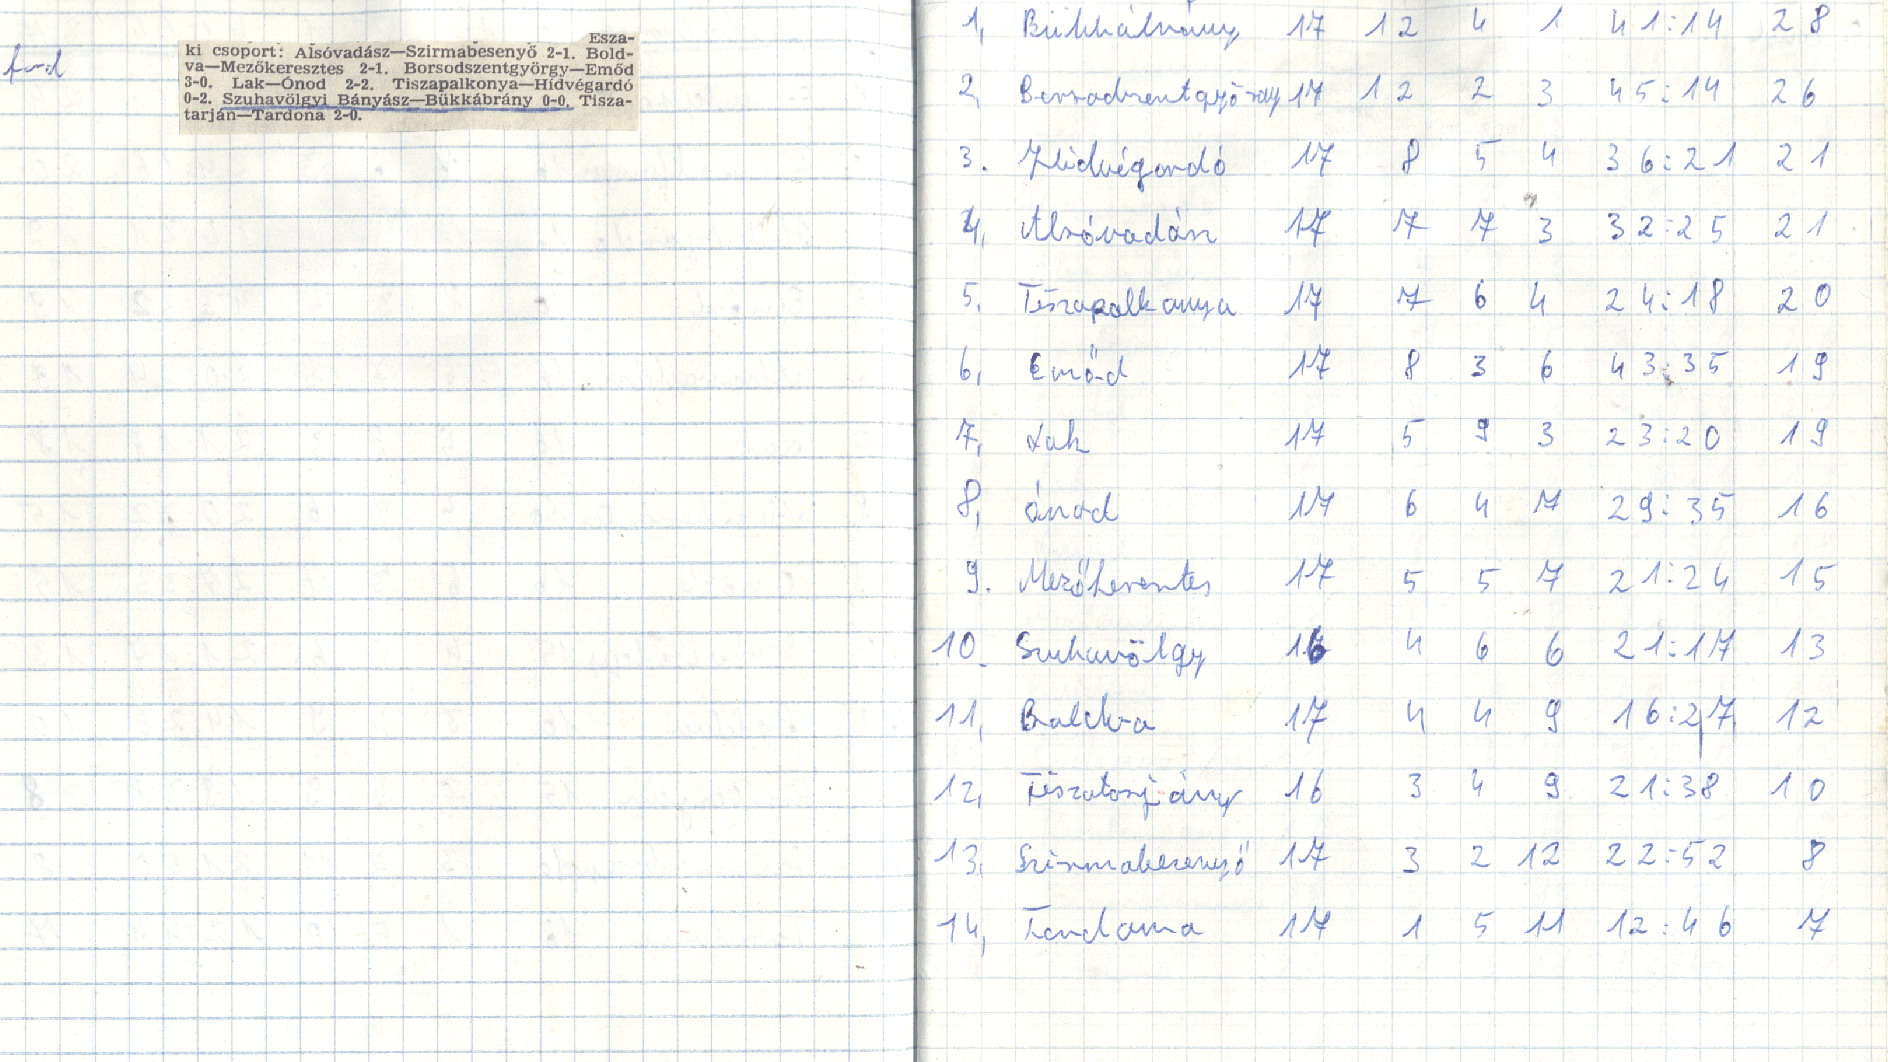 Esza-
ki csoport: Alsóvadász—Szirmabesenyő 2-1. Bold-
va—Mezőkeresztes 2-1. Borsodszentgyörgy—Emőd
3-0. Lak—Ónod 2-2. Tiszapalkonya—Hídvégardó
0-2. Szuhavölgyi Bányász—Bükkábrány 0-0. Tisza-
tarján—Tardona 2-0.
1, Bükkábrány 17 12 4 1 41:14 28
2, Borsodszentgyörgy 17 12 2 3 45:14 26
3. Hidvégardó 17 8 5 4 36:21 21
4, Alsóvadász 17 7 7 3 32:25 21
5, Tiszapalkonya 17 7 6 4 24:18 20
6, Emőd 17 8 3 6 43:35 19
7, Lak 17 5 9 3 23:20 19
8, Ónod 17 6 4 7 29:35 16
9. Mezőkeresztes 17 5 5 7 21:24 15
10. Szuhavölgy 16 4 6 6 21:17 13
11, Boldva 17 4 4 9 16:27 12
12, Tiszatarján 16 3 4 9 21:38 10
13, Szirmabesenyő 17 3 2 12 22:52 8
14, Tardona 17 1 5 11 12:46 7